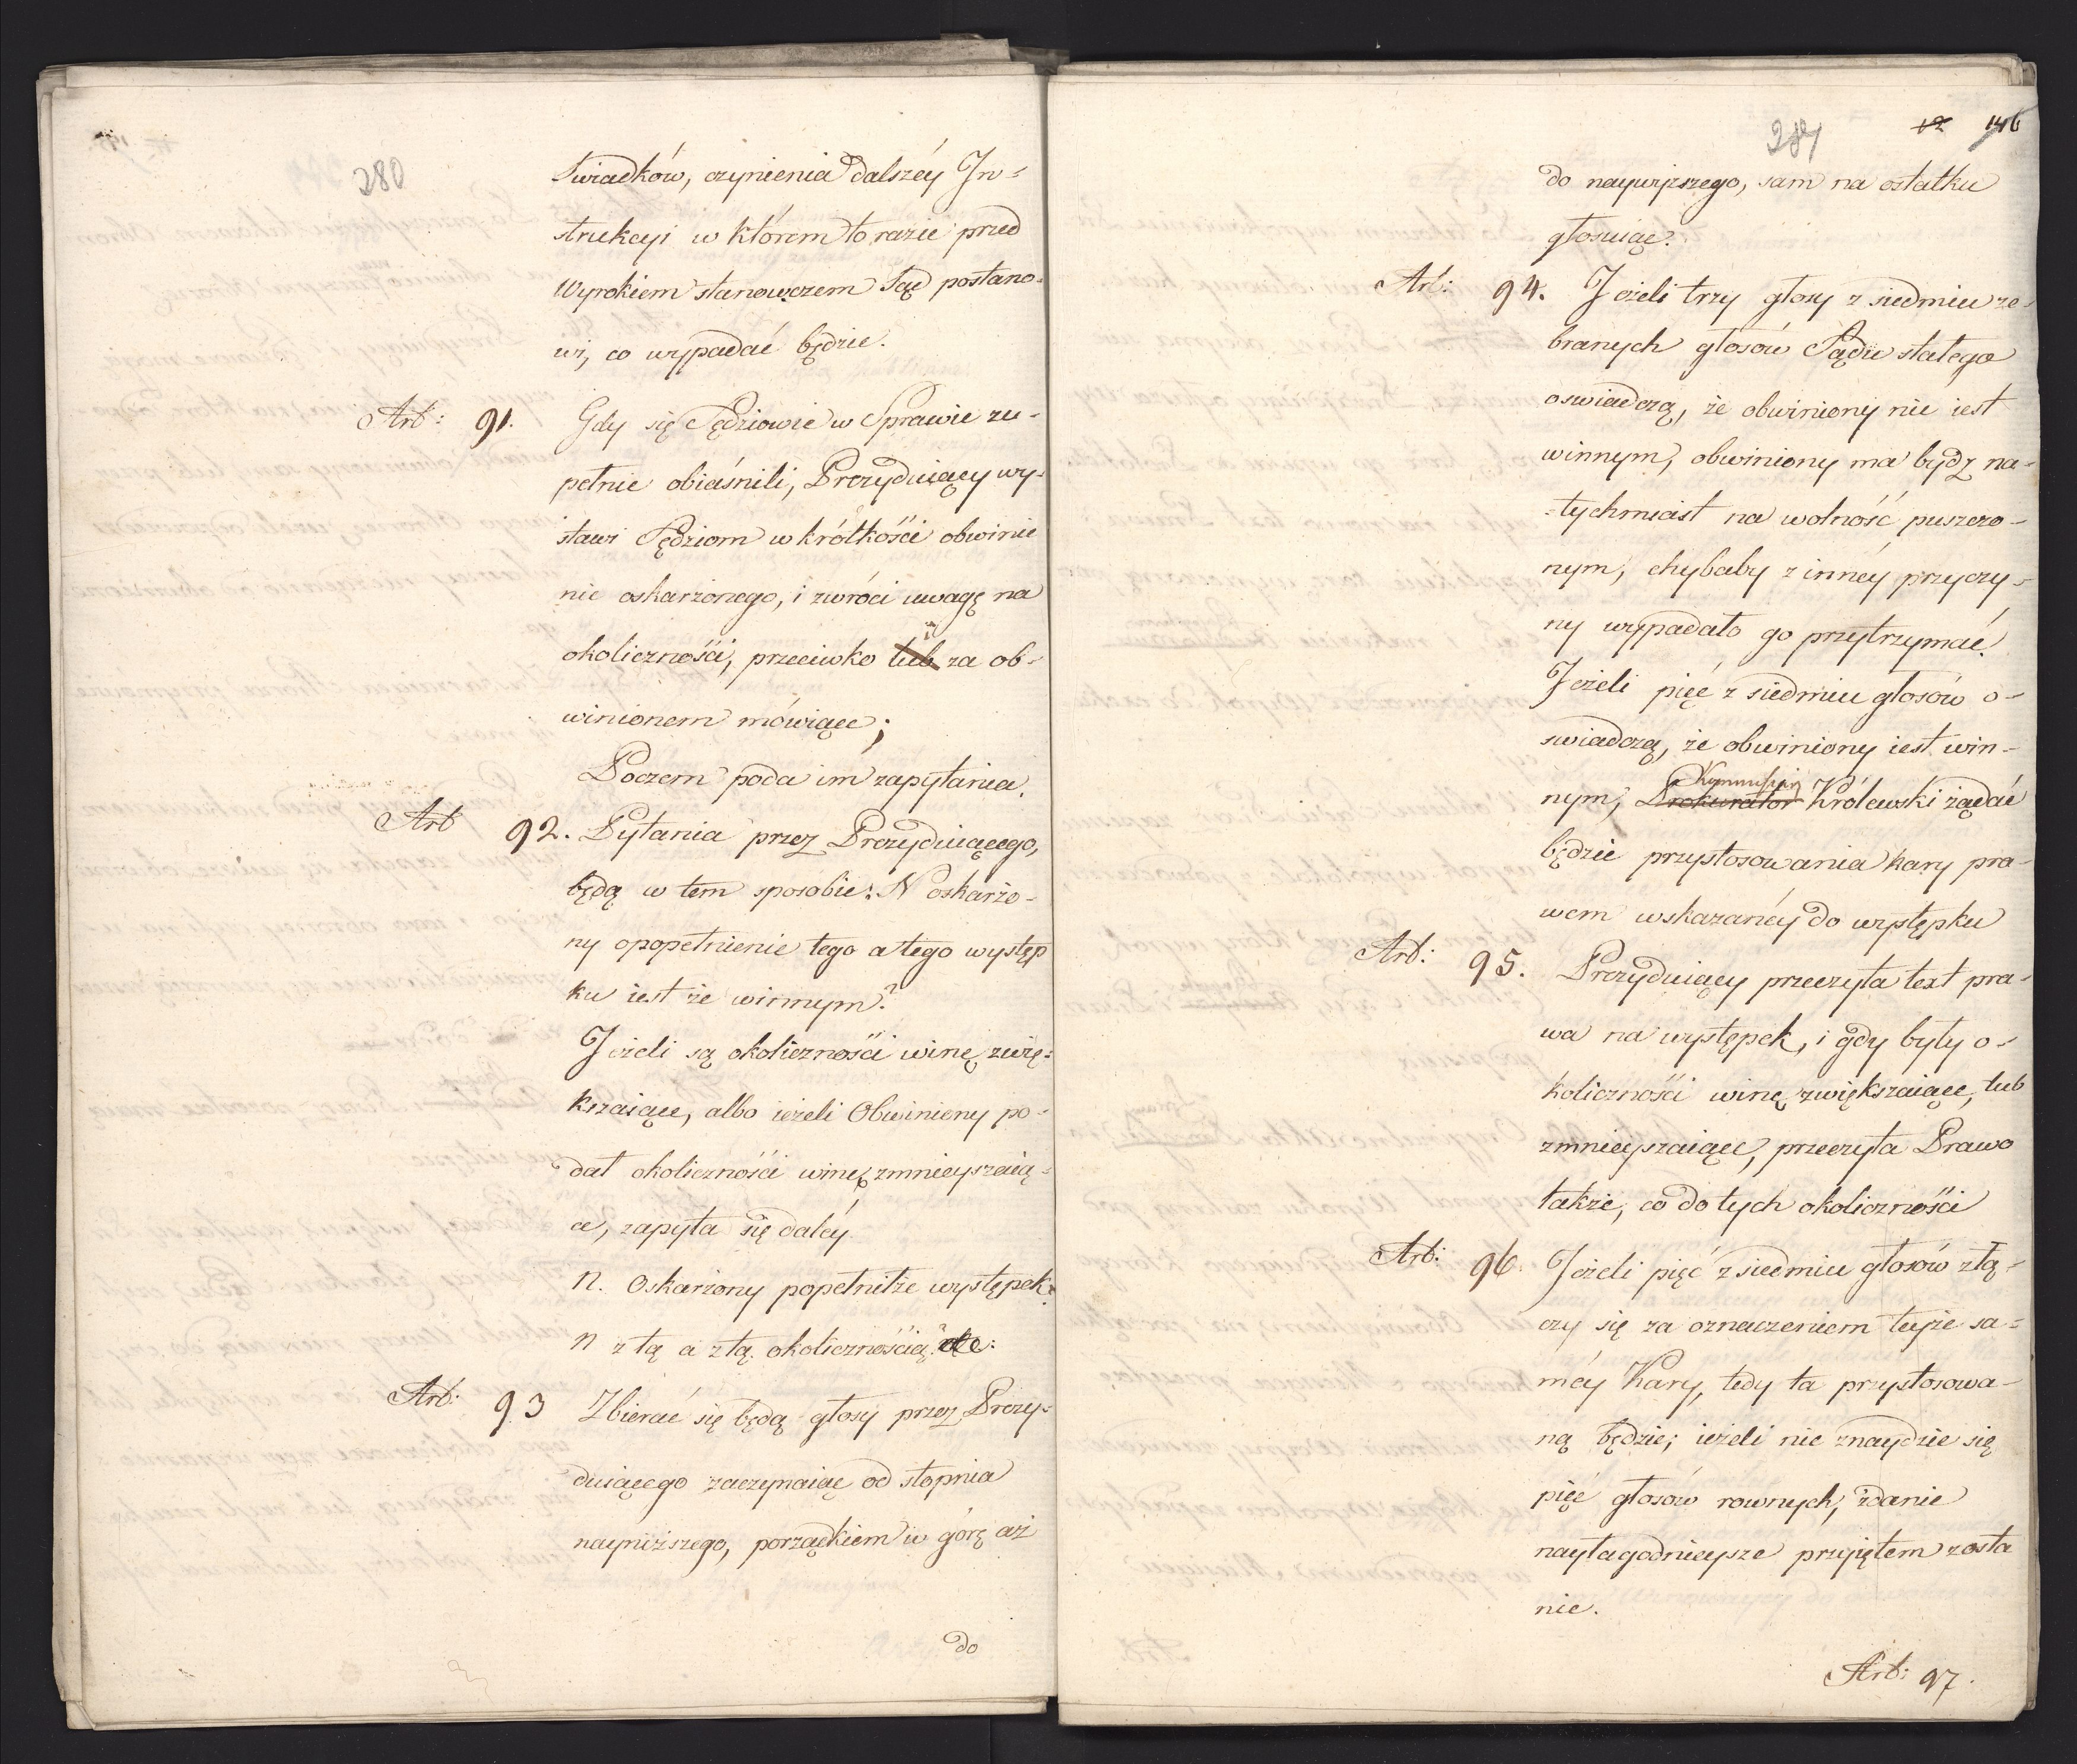 280
Swiadków, czynienia dalszéy In=
strukcyi w którem to razie przed
Wyrokiem stanowczem Sąd postano=
wi, co wypadać będzie.
Art: 91. Gdy się Sędziowie w Sprawie zu=
pełnie obiaśnili, Prezyduiący wy=
stawi Sędziom w krótkości obwinie
nie oskarżonego, i zwróci uwagę na
okoliczności, przeciwko lub za ob=
winionem mówiące;
Poczem poda im zapytania.
Art 92. Pytania przez Prezyduiącego,
będą w tem sposobie: N oskarżo=
ny opopełnienie tego a tego występ
ku iest że winnym?
Jeżeli są okoliczności winę zwię=
kszaiące, albo ieżeli Obwiniony po=
dał okoliczności winę zmnieyszaią=
ce, zapyta się daléy
N. Oskarżony popełniłże występek
N z tą a z tą okolicznością? etc:
Art: 93 Zbierać się będą głosy przez Prezy=
duiącego zaczynaiąc od stopnia
nayniższego, porządkiem w górę aż
do
281 12 146
do naywyższego, sam na ostatku
głosuiąc.
Art: 94. Jeżeli trzy głosy z siedmiu ze=
branych głosów Sądu stałego
oswiadczą, że obwiniony nie iest
winnym, obwiniony ma bydz na=
=tychmiast na wolność puszczo=
nym, chybaby z innéy przyczy=
ny wypadało go przytrzymać.
Jeżeli pięć z siedmiu głosów o=
swiadczą, że obwiniony iest win=
nym, Prokurator Królewski żądać
będzie przystosowania kary pra=
wem wskazanéy do występku
Art: 95. Prezyduiący przeczyta text pra=
wa na występek, i gdy były o=
koliczności winę zwiększaiące, lub
zmnieyszaiące, przeczyta Prawo
także, co do tych okoliczności
Art: 96. Jeżeli pięć z siedmiu głosów złą=
czy się za oznaczeniem teyże sa=
méy Kary, tedy ta przystosowa=
ną będzie; ieżeli nie znaydzie się
pięć głosów rownych, zdanie
nayłagodnieysze przyiętem zosta
nie.
Art: 97.